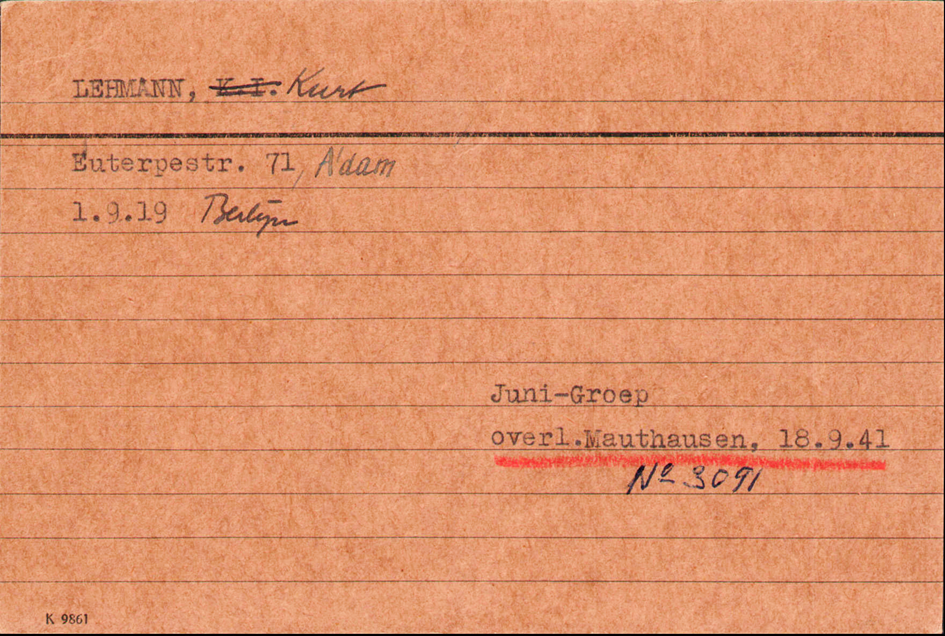 LEHMANN, K.I. Kurt
Euterpestr. 71, A'dam
1.9.19 Berlijn
Juni-Groep
overl.Mauthausen, 18.9.41
No 3091
K 9861